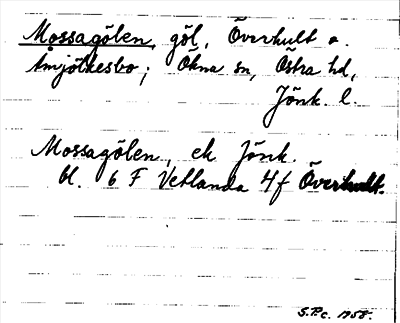 Mossagölen, göl, Överhult o.
Smjölkesbo; Ökna sn, Östra hd,
Jönk. l.
Mossagölen, ek Jönk.
bl. 6 F Vetlanda 4f Överhult.
S.P.c. 1958.